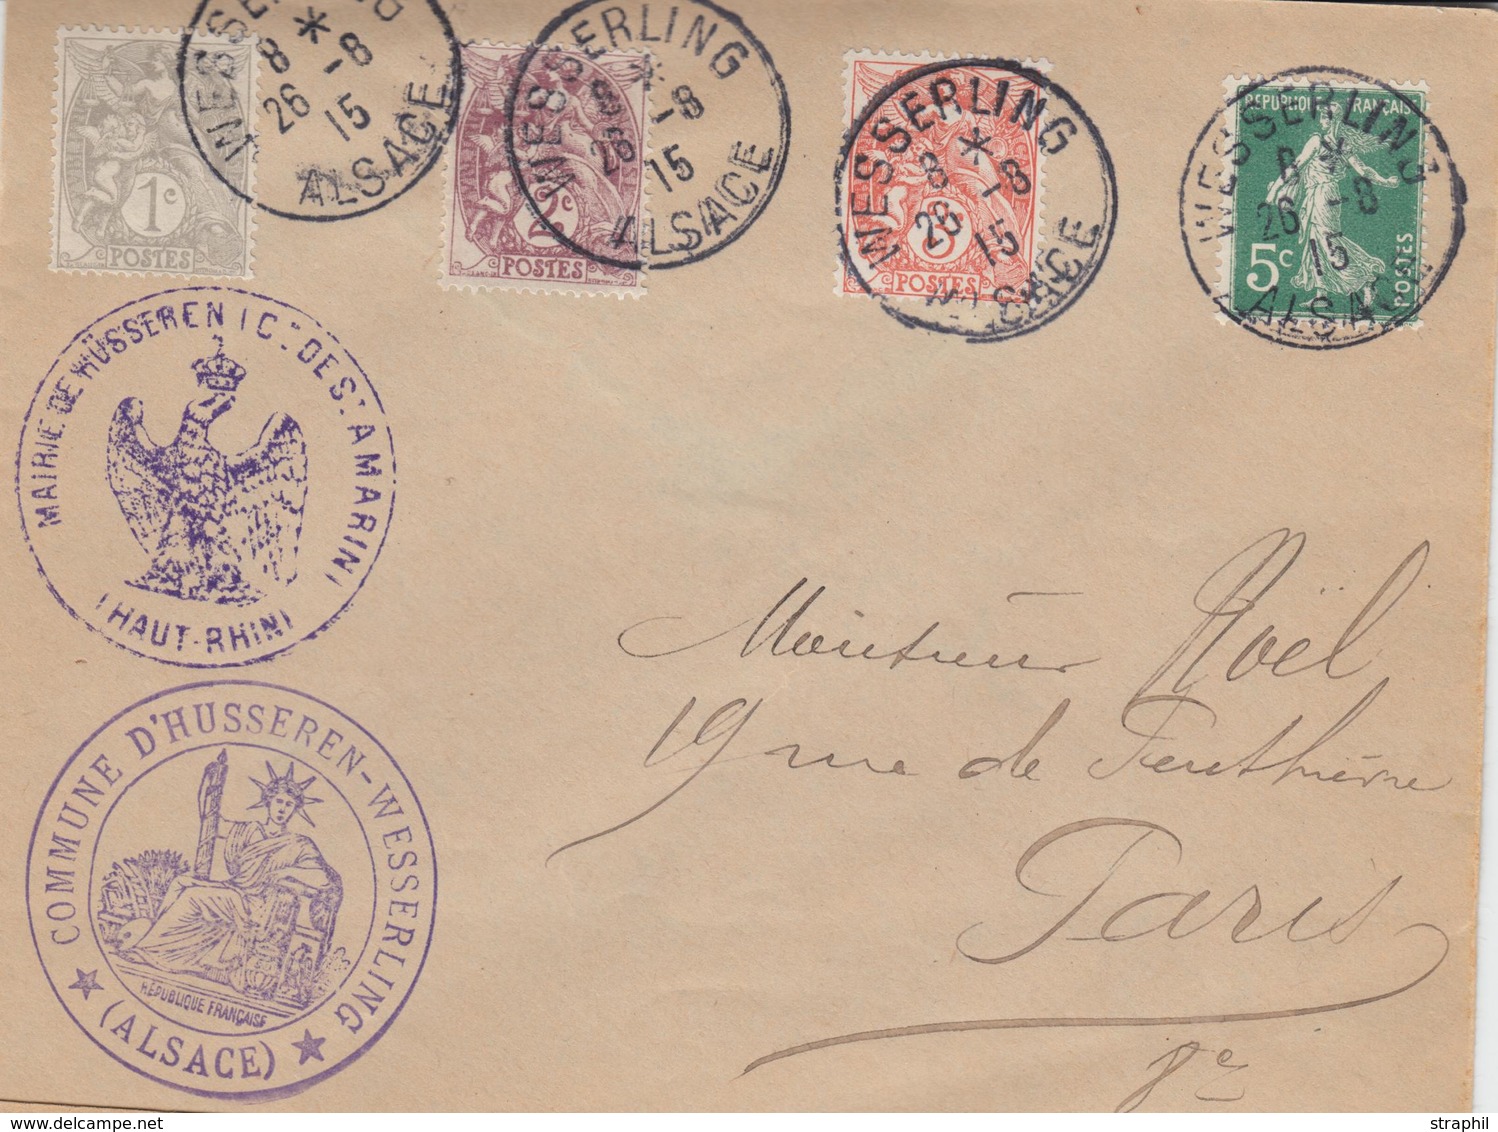 WESSERLING
8 * -8
26 15
ALSACE
1c
POSTES
WESSERLING
8 * -8
26 15
ALSACE
2c
POSTES
WESSERLING
8 * -8
26 15
ALSACE
3c
POSTES
REPUBLIQUE FRANÇAISE
5c
POSTES
WESSERLING
8 * -8
26 15
ALSACE
MAIRIE DE HUSSEREN (C.on DE ST AMARIN)
(HAUT-RHIN)
COMMUNE D'HUSSEREN-WESSERLING
RÉPUBLIQUE FRANÇAISE
★ (ALSACE) ★
Monsieur Noël
19 rue de Penthièvre
Paris
8e
straphil